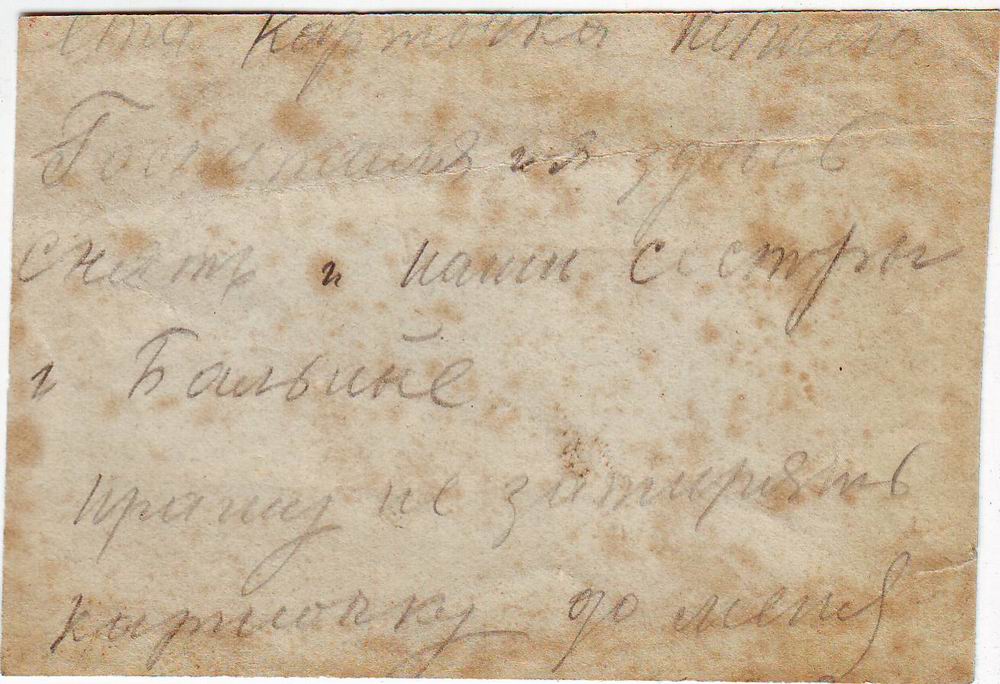 Эта карточка нашего
Госпиталя и я здесь
снят и наши сестры
и больные
прашу не затирять
карточку до меня